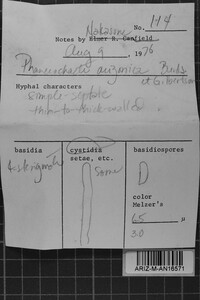 Nakasone No. 114
Notes by Elmer R. Canfield
Aug 9 1976
Phanerochaete arizonica Burds.
et Gilbertson
Hyphal characters
simple-septate
thin to thick-walled
basidia cystidia basidiospores
setae, etc.
4-sterigmata some D
color
Melzer's
6.5 µ
3.0
ARIZ-M-AN16571